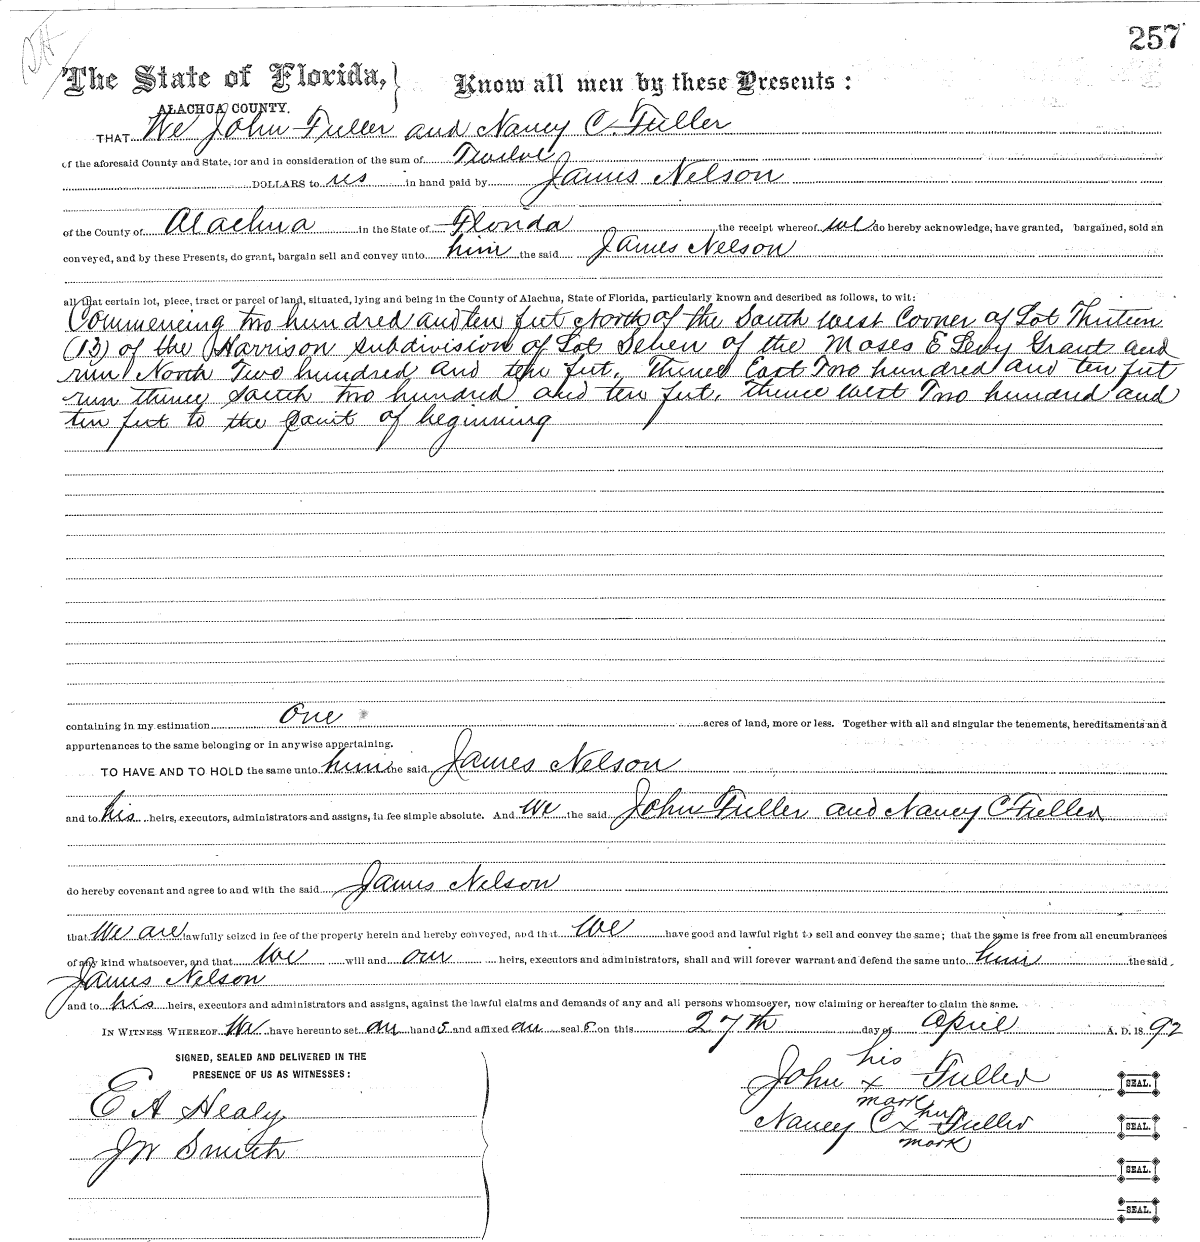 257
The State of Florida, } Know all men by these Presents :
ALACHUA COUNTY.
THAT We John Fuller and Nancy C. Fuller
of the aforesaid County and State, for and in consideration of the sum of Twelve
DOLLARS to us in hand paid by James Nelson
of the County of Alachua in the State of Florida the receipt whereof we do hereby acknowledge, have granted, bargained, sold an
conveyed, and by these Presents, do grant, bargain sell and convey unto him the said James Nelson
all that certain lot, piece, tract or parcel of land, situated, lying and being in the County of Alachua, State of Florida, particularly known and described as follows, to wit:
Commencing two hundred and ten feet North of the South west Corner of Lot Thirteen
(13) of the Harrison subdivision of Lot Seven of the Moses E Levy Grant and
run North Two hundred and ten feet, Thence East Two hundred and ten feet
run thence South two hundred and ten feet, thence west Two hundred and
ten feet to the point of beginning
containing in my estimation One acres of land, more or less. Together with all and singular the tenements, hereditaments and
appurtenances to the same belonging or in anywise appertaining.
TO HAVE AND TO HOLD the same unto him he said James Nelson
and to his heirs, executors, administrators and assigns, in fee simple absolute. And we the said John Fuller and Nancy C Fuller
do hereby covenant and agree to and with the said James Nelson
that We are lawfully seized in fee of the property herein and hereby conveyed, and that We have good and lawful right to sell and convey the same; that the same is free from all encumbrances
of any kind whatsoever, and that We will and our heirs, executors and administrators, shall and will forever warrant and defend the same unto him the said
James Nelson
and to his heirs, executors and administrators and assigns, against the lawful claims and demands of any and all persons whomsoever, now claiming or hereafter to claim the same.
IN WITNESS WHEREOF We have hereunto set our hands and affixed our seals on this 27th day of April A. D. 1892
SIGNED, SEALED AND DELIVERED IN THE
PRESENCE OF US AS WITNESSES :
E A Healy
JW Smith
his
John x Fuller SEAL.
mark
her
Nancy C x Fuller SEAL.
mark
SEAL.
SEAL.